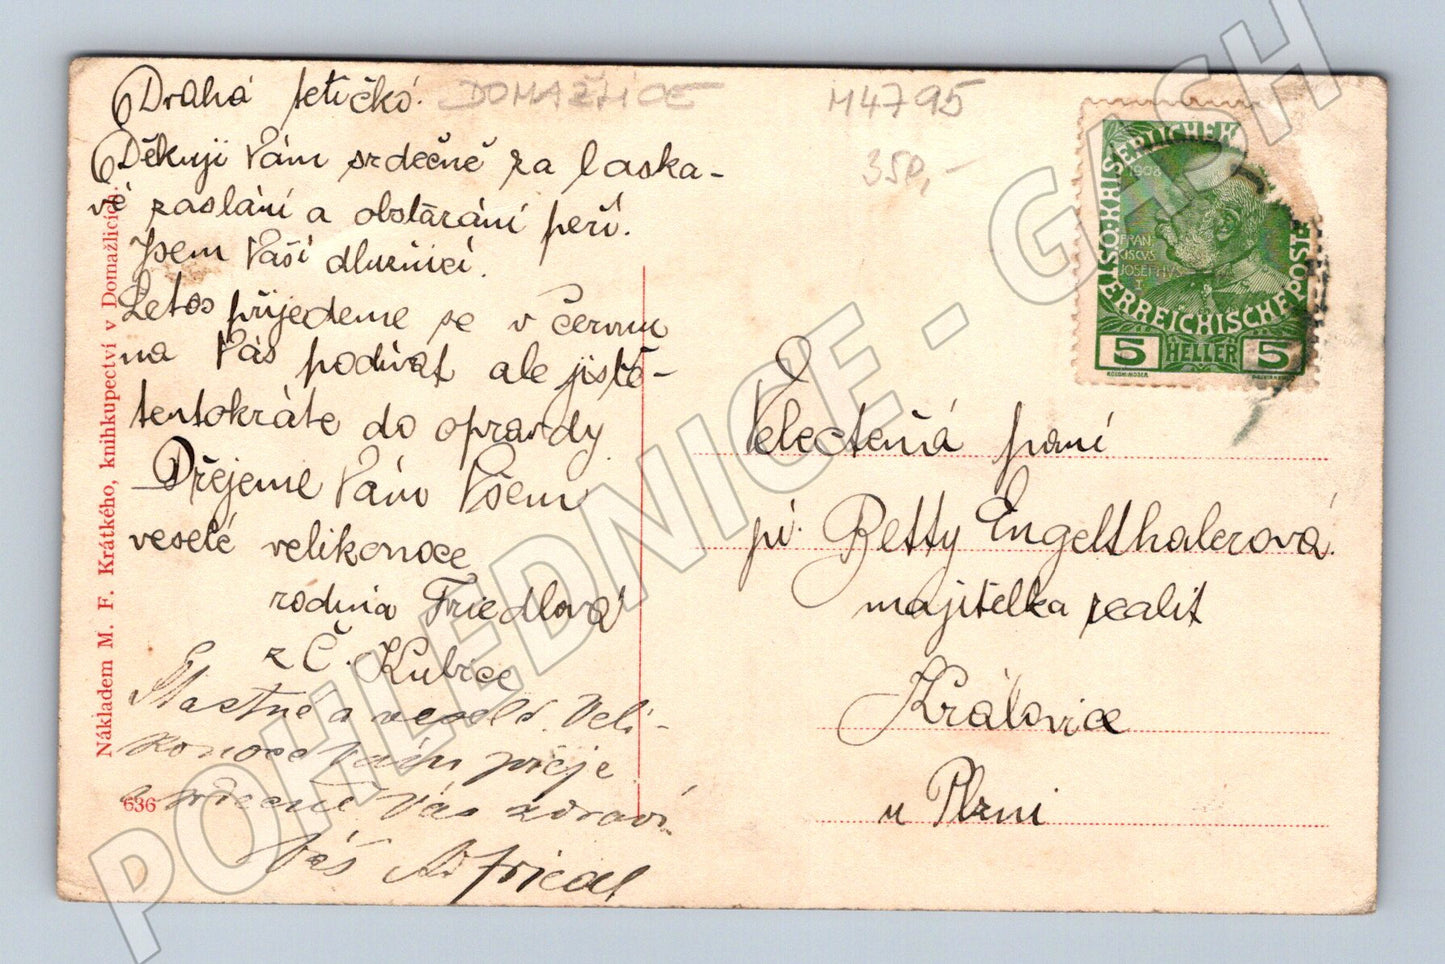 Drahá tetičko!
DOMAŽLICE
M4795
350,-
Děkuji Vám srdečně za laska-
vé zaslání a obstarání peří.
Jsem Vaší dlužnicí.
Letos přijedeme se v červnu
na Vás podívat ale jistě-
tentokráte do opravdy
Přejeme Vám Všem
veselé velikonoce
rodina Friedlova
z Č. Kubice
Šťastné a veselé Veli-
konoce Vám přeje
a srdečně Vás zdraví
Váš Friedl
Nákladem M. F. Krátkého, knihkupectví v Domažlicích.
636
KAISERLICHEKÖ
1908
FRAN
CISCVS
JOSEPHVS
I
ERREICHISCHE POST
5 HELLER 5
Velectená paní
pí. Betty Engelthalerová
majitelka realit
Královice
u Plzni
POHLEDNICE - GASH